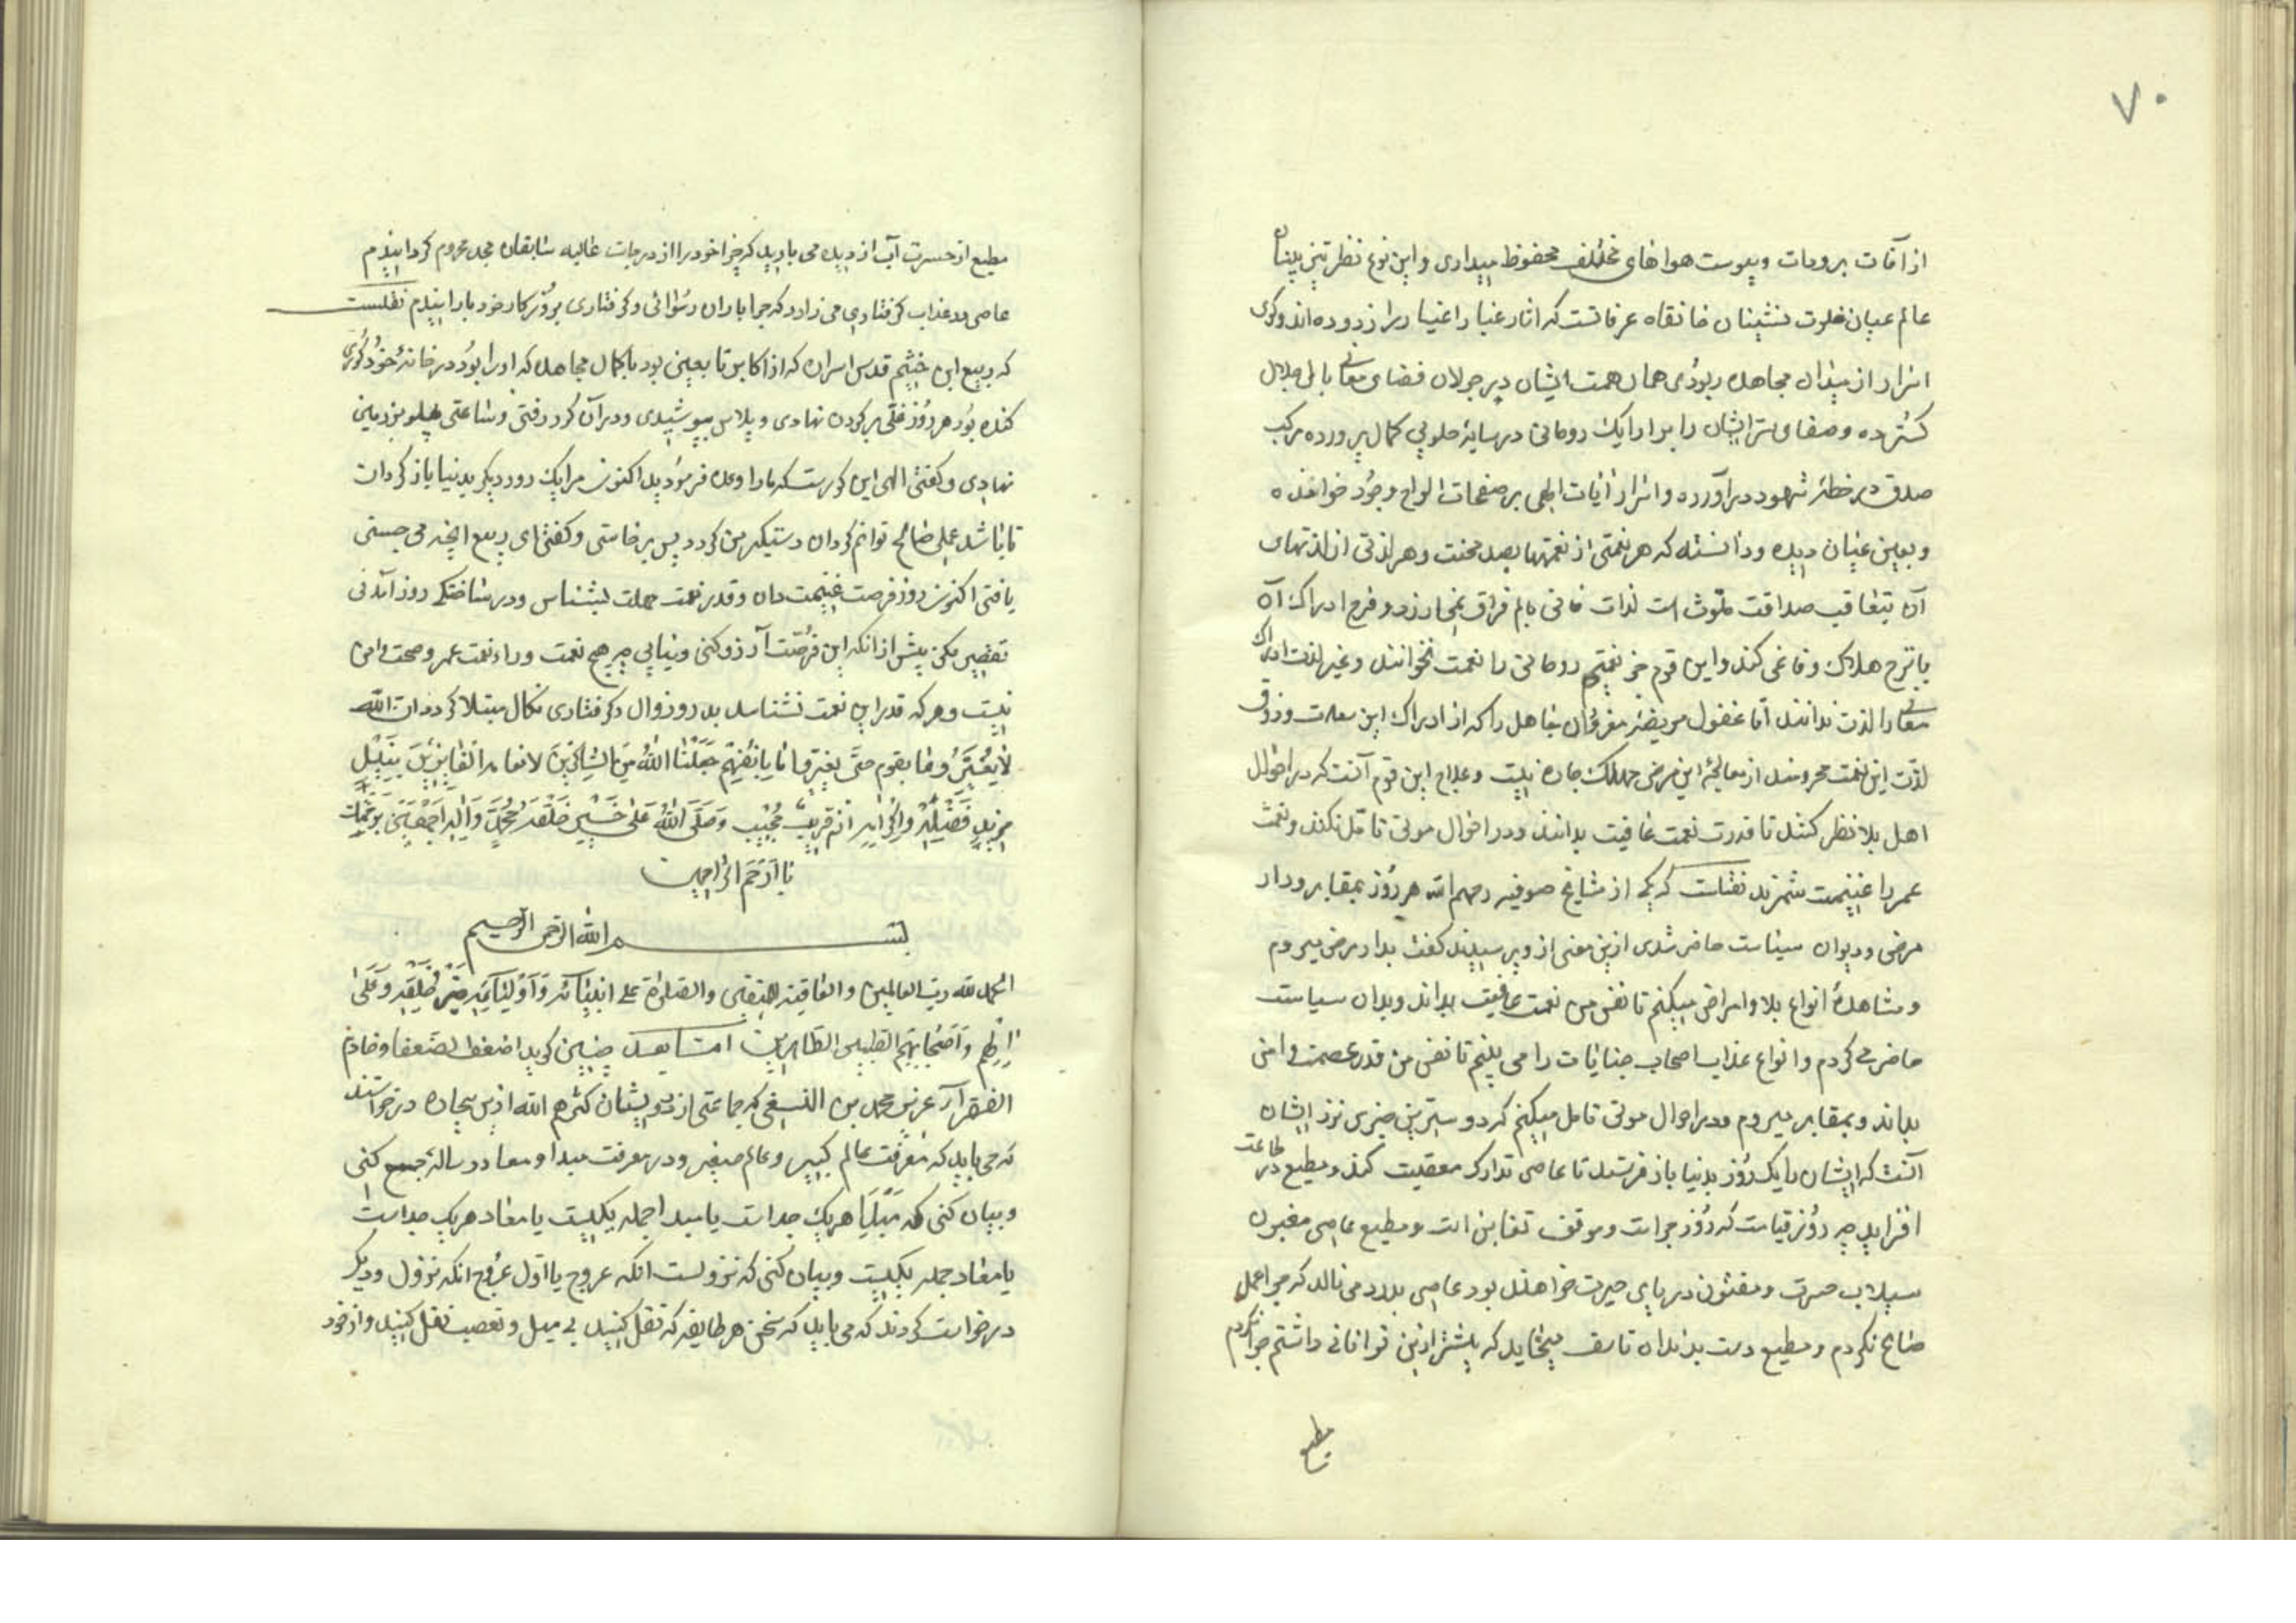 ۷۰
از آفات برودات و یبوست هواهای مختلف محفوظ میداری و این نوع نظر تیزبینان
عالم عیان خلوت نشینان خانقاه عرفانست که اثار غبار اغیار را زدوده اند و کوی
اسرار از میدان مجاهده ربودی همان همت ایشان در جولان فضای معانی بال جلال
کسترده و صفای سر ایشان را بر ارایک روحانی در سایهٔ طوبی کمال پرورده مرکب
صدق در خطهٔ شهود درآورده و اسرار ایات الهی بر صفحات الواح وجود خوانده
و بعین عیان دیده و دانسته که هر نعمتی از نعمتها بصد محنت و هر لذتی از لذتهای
آن بتعاقب صداقت ملوث است لذات فانی بالم فراق نمی ارزد و فرح ادراک آن
با ترح هلاک وفا نمی کند و این قوم جز نعیم روحانی را نعمت نخوانند و غیر لذت ادراک
معانی را لذت ندانند اما غفول مریض مغرور جاهل را که از ادراک این سعادت و ذوق
لذت این نعمت محرومند از معالجهٔ این مرض مهلک چاره نیست و علاج این قوم آنست که در احوال
اهل بلا نظر کنند تا قدرت نعمت عافیت بدانند و در احوال موتی تامل نکنند و نعمت
عمر را غنیمت شمرند نقلست که یکی از مشایخ صوفیه رحمهم الله هر روز بمقابر و دار
مرضی و دیوان سیاست حاضر شدی ازین معنی از و پرسیدند کفت بدار مرضی میروم
و مشاهدهٔ انواع بلا و امراض میکنم تا نفس من نعمت عافیت بداند و بدان سیاست
حاضر می کردم و انواع عذاب اصحاب جنایات را می بینم تا نفس من قدر عصمت و امن
بداند و بمقابر میروم و در احوال موتی تامل میکنم که دوسترین چیزی نزد ایشان
آنست که ایشان را یک روز بدنیا باز فرستند تا عاصی تدارک معصیت کند و مطیع در طاعت
افزاید چه روز قیامت که روز جزاست و موقف تغابن است و مطیع عاصی مغبون
سیلاب حسرت و مفتون دریای حیرت خواهند بود عاصی بدرد می نالد که چرا عمل
صالح نکردم و مطیع دست بدندان تاسف میخاید که بیشتر ازین توانائی داشتم چرا نکردم
مطیع
مطیع از حسرت آب از دیده می بارید که چرا خود را از درجات عالیه سابقان مجد محروم کردانیدم
عاصی در عذاب کرفتاری می زارد که چرا باران رسوائی و کرفتاری بروزکار خود بارانیدم نقلست
که ربیع ابن خثیم قدس اسراره که از اکابر تابعین بود با کمال مجاهده که او را بود در خانهٔ خود کوری
کنده بود هر روز غلی بر کردن نهادی و پلاس بپوشیدی و در آن کور رفتی و ساعتی پهلو بزمین
نهادی و کفتی الهی این کورست که ما را وعده فرمودید اکنون مرا یک روز دیکر بدنیا باز کردان
تا باشد عملی صالح توانم کردان دستیکر من کردد پس برخاستی و کفتی ای ربیع انچه می جستی
یافتی اکنون روز فرصت غنیمت دان و قدر نعمت مهلت بشناس و در شاختکی روز آمدنی
تقصیر مکن پیش از انکه این فرصت آرزو کنی و نیابی چه هیچ نعمت وراء نعمت عمر و صحت و امن
نیست و هر که قدر این نعمت نشناسد بدرد زوال و کرفتاری نکال مبتلا کردد ان الله
لا یغیر ما بقوم حتی یغیروا ما بانفسهم جعلنا الله من الشاکرین لانعامه الفایزین بنیل
مزید فضله و اکرامه انه قریب مجیب و صلی الله علی خیر خلقه محمد و آله اجمعین برحمتک
یا ارحم الراحمین
بسم الله الرحمن الرحیم
الحمد لله رب العالمین و العاقبة للمتقین و الصلوة علی انبیائه و اولیائه خیر خلقه و علی
الهم و اصحابهم الطیبین الطاهرین اما بعد چنین کوید اضعف الضعفا و خادم
الفقرا عزیز محمد بن النسفی که جماعتی از درویشان کثرهم الله ازین بیچاره درخواستند
که می باید که معرفت عالم کبیر و عالم صغیر و در معرفت مبدا و معاد رسالهٔ جمع کنی
و بیان کنی که مبدا هر یک جداست یا مبدا جمله یکیست یا معاد هر یک جداست
یا معاد جمله یکیست و بیان کنی که نزولست انکه عروج یا اول عروج انکه نزول و دیکر
درخواست کردند که می باید که سخن هر طایفه که نقل کنید بی میل و تعصب نقل کنید و از خود